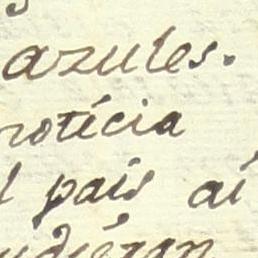 azules.
noticía
l país aí
udiéran